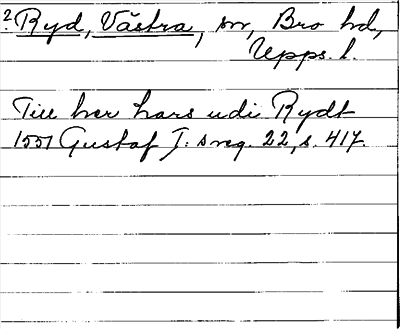 ? Ryd, Västra, sn, Bro hd,
Upps. l.
Till her hars udi Rydt
1551 Gustaf I: s reg. 22, s. 417.